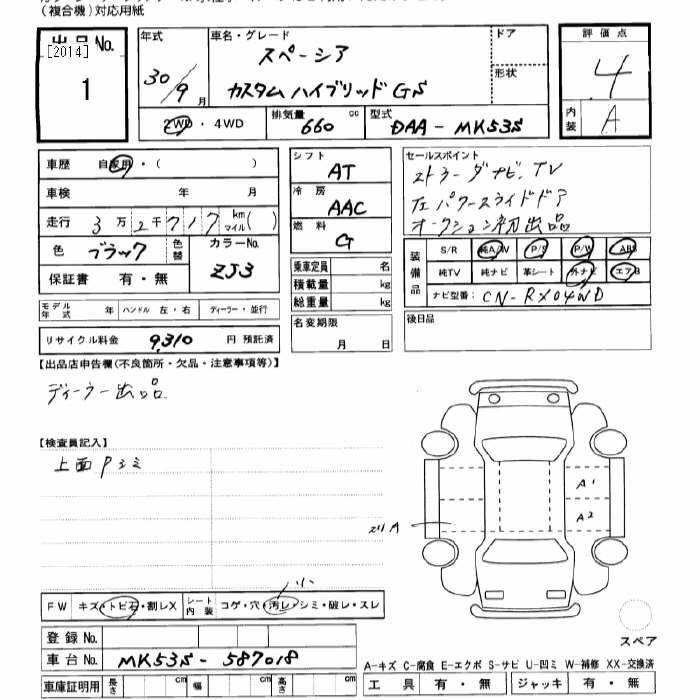 (複合機)対応用紙
出品No.
[2014]
1
年式
30/9月
車名・グレード
スペーシア
カスタムハイブリッドGS
ドア
形状
評価点
4
内装
A
2WD・4WD
排気量
660 cc
型式
DAA-MK53S
車歴 自家用・( )
車検 年 月
走行 3万2千717 km マイル( )
色 ブラック
色替
カラーNo.
ZJ3
保証書 有・無
シフト
AT
冷房
AAC
燃料
G
乗車定員 名
積載量 kg
総重量 kg
セールスポイント
ナビ、TV
左パワースライドドア
オークション初出品
装備品
S/R 純A/W P/S P/W ABS
純TV 純ナビ 革シート 外ナビ エアB
ナビ型番: CN-RX04WD
モデル年式 年 ハンドル 左・右 ディーラー・並行
リサイクル料金 9,310 円 預託済
名変期限
月 日
後日品
【出品店申告欄(不良箇所・欠品・注意事項等)】
ディーラー出品
【検査員記入】
上面Pシミ
A1
A2
スリA
小
FW キズ・トビ石・割レX シート内装 コゲ・穴・汚レ・シミ・破レ・スレ
登録No.
車台No. MK53S-587018
車庫証明用 長さ cm 幅 cm 高さ cm
スペア
A-キズ C-腐食 E-エクボ S-サビ U-凹ミ W-補修 XX-交換済
工具 有・無 ジャッキ 有・無